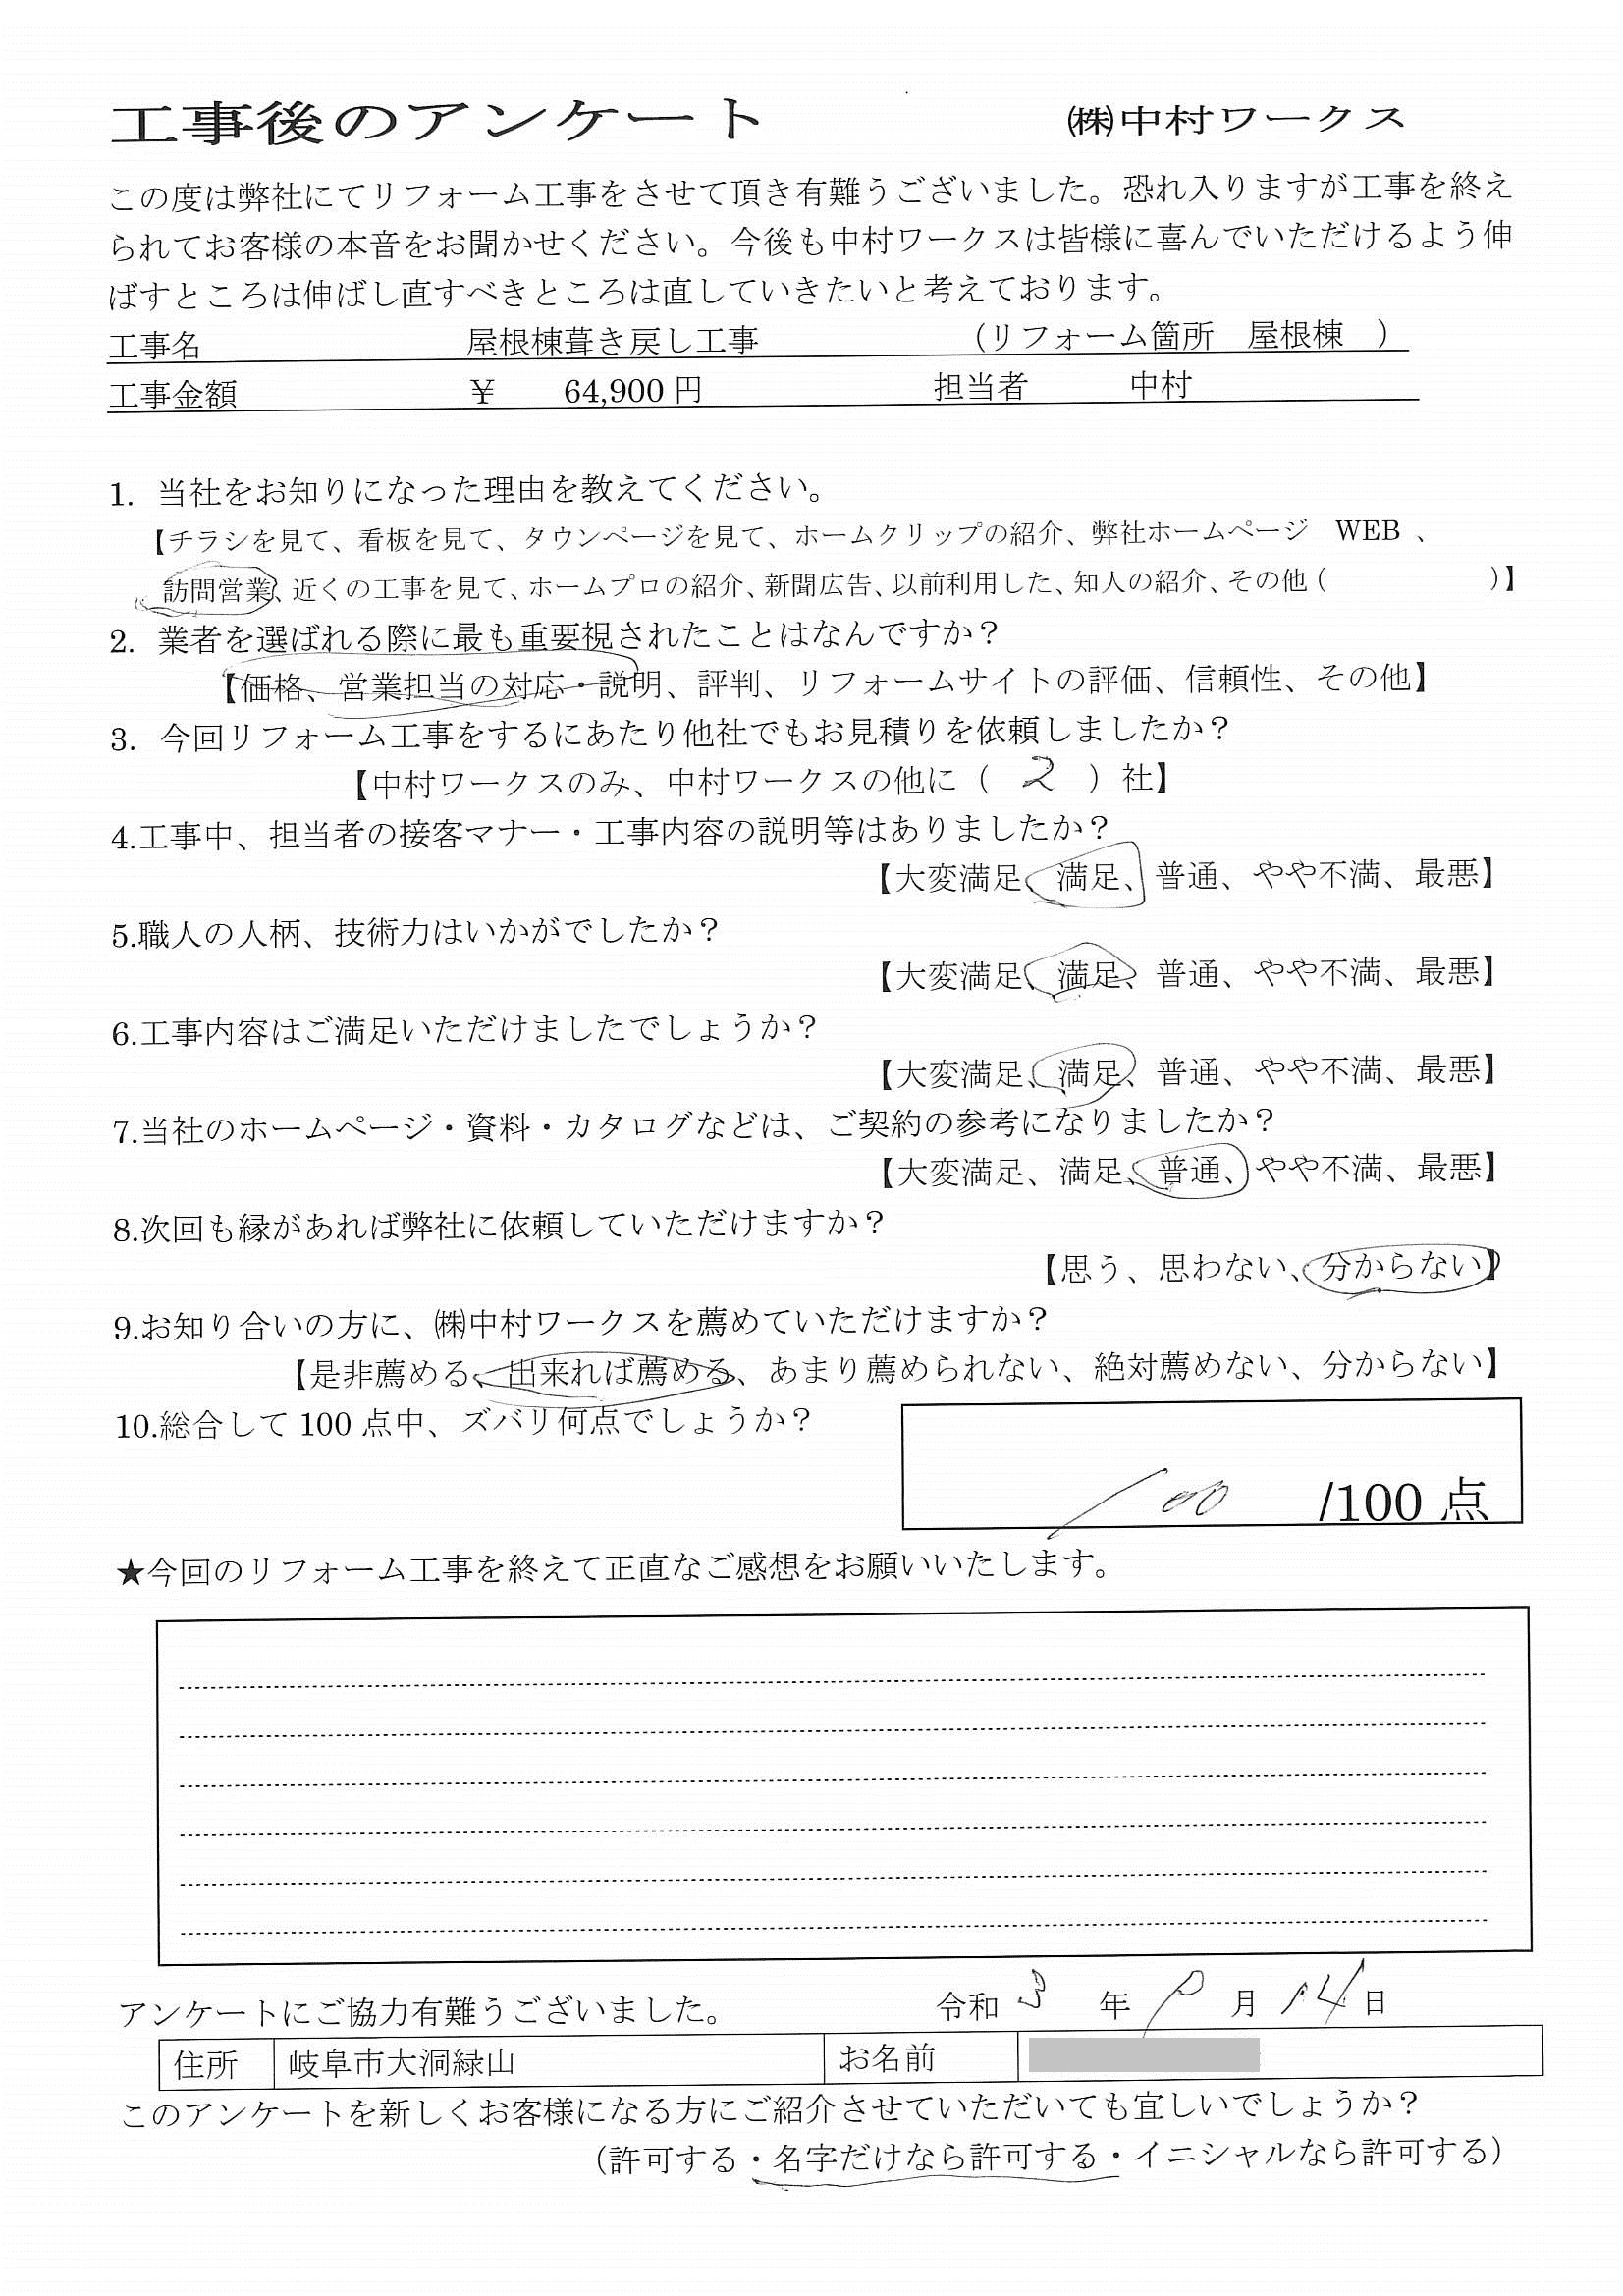 工事後のアンケート　㈱中村ワークス
この度は弊社にてリフォーム工事をさせて頂き有難うございました。恐れ入りますが工事を終え
られてお客様の本音をお聞かせください。今後も中村ワークスは皆様に喜んでいただけるよう伸
ばすところは伸ばし直すべきところは直していきたいと考えております。
工事名　屋根棟葺き戻し工事　（リフォーム箇所　屋根棟　）
工事金額　￥　64,900円　担当者　中村
1. 当社をお知りになった理由を教えてください。
【チラシを見て、看板を見て、タウンページを見て、ホームクリップの紹介、弊社ホームページ　WEB 、
訪問営業、近くの工事を見て、ホームプロの紹介、新聞広告、以前利用した、知人の紹介、その他（　　　）】
2. 業者を選ばれる際に最も重要視されたことはなんですか？
【価格、営業担当の対応・説明、評判、リフォームサイトの評価、信頼性、その他】
3. 今回リフォーム工事をするにあたり他社でもお見積りを依頼しましたか？
【中村ワークスのみ、中村ワークスの他に（　2　）社】
4.工事中、担当者の接客マナー・工事内容の説明等はありましたか？
【大変満足、満足、普通、やや不満、最悪】
5.職人の人柄、技術力はいかがでしたか？
【大変満足、満足、普通、やや不満、最悪】
6.工事内容はご満足いただけましたでしょうか？
【大変満足、満足、普通、やや不満、最悪】
7.当社のホームページ・資料・カタログなどは、ご契約の参考になりましたか？
【大変満足、満足、普通、やや不満、最悪】
8.次回も縁があれば弊社に依頼していただけますか？
【思う、思わない、分からない】
9.お知り合いの方に、㈱中村ワークスを薦めていただけますか？
【是非薦める、出来れば薦める、あまり薦められない、絶対薦めない、分からない】
10.総合して 100 点中、ズバリ何点でしょうか？
100 /100 点
★今回のリフォーム工事を終えて正直なご感想をお願いいたします。
アンケートにご協力有難うございました。　令和 3 年　月 14 日
住所　岐阜市大洞緑山　お名前
このアンケートを新しくお客様になる方にご紹介させていただいても宜しいでしょうか？
（許可する・名字だけなら許可する・イニシャルなら許可する）